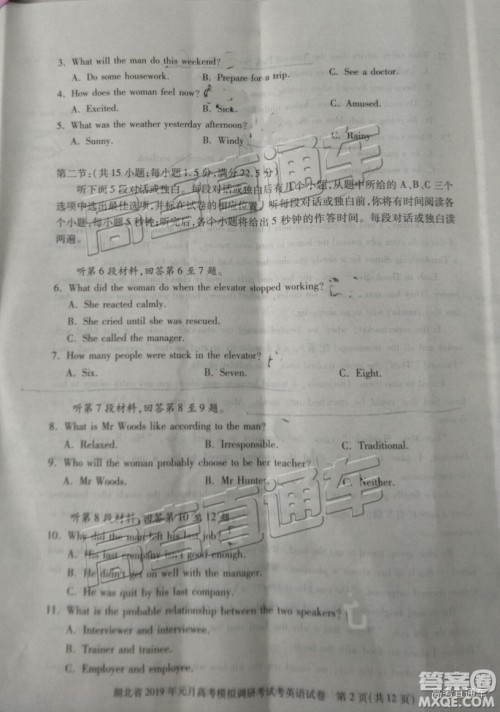 3. What will the man do this weekend?
A. Do some housework. B. Prepare for a trip. C. See a doctor.
4. How does the woman feel now?
A. Excited. B. Sick. C. Amused.
5. What was the weather yesterday afternoon?
A. Sunny. B. Windy. C. Rainy.
第二节:(共15小题;每小题1.5分,满分22.5分)
听下面5段对话或独白。每段对话或独白后有几个小题,从题中所给的A、B、C三个
选项中选出最佳选项,并标在试卷的相应位置。听每段对话或独白前,你将有时间阅读各
个小题,每小题5秒钟;听完后,各个小题将给出5秒钟的作答时间。每段对话或独白读
两遍。
听第6段材料,回答第6至7题。
6. What did the woman do when the elevator stopped working?
A. She reacted calmly.
B. She cried until she was rescued.
C. She called the manager.
7. How many people were stuck in the elevator?
A. Six. B. Seven. C. Eight.
听第7段材料,回答第8至9题。
8. What is Mr Woods like according to the man?
A. Relaxed. B. Irresponsible. C. Traditional.
9. Who will the woman probably choose to be her teacher?
A. Mr Woods. B. Mr Hunter. C. Neither.
听第8段材料,回答第10至12题。
10. Why did the man left his last job
A. His last company isn't good enough.
B. He didn't get on well with the manager.
C. He was quit by his last company.
11. What is the probable relationship between the two speakers?
A. Interviewer and interviewee.
B. Trainer and trainee.
C. Employer and employee.
湖北省2019年元月高考模拟调研考试考英语试卷 第2页(共12页)
高考直通车
高考直通车
高考直通车
MXQE.COM